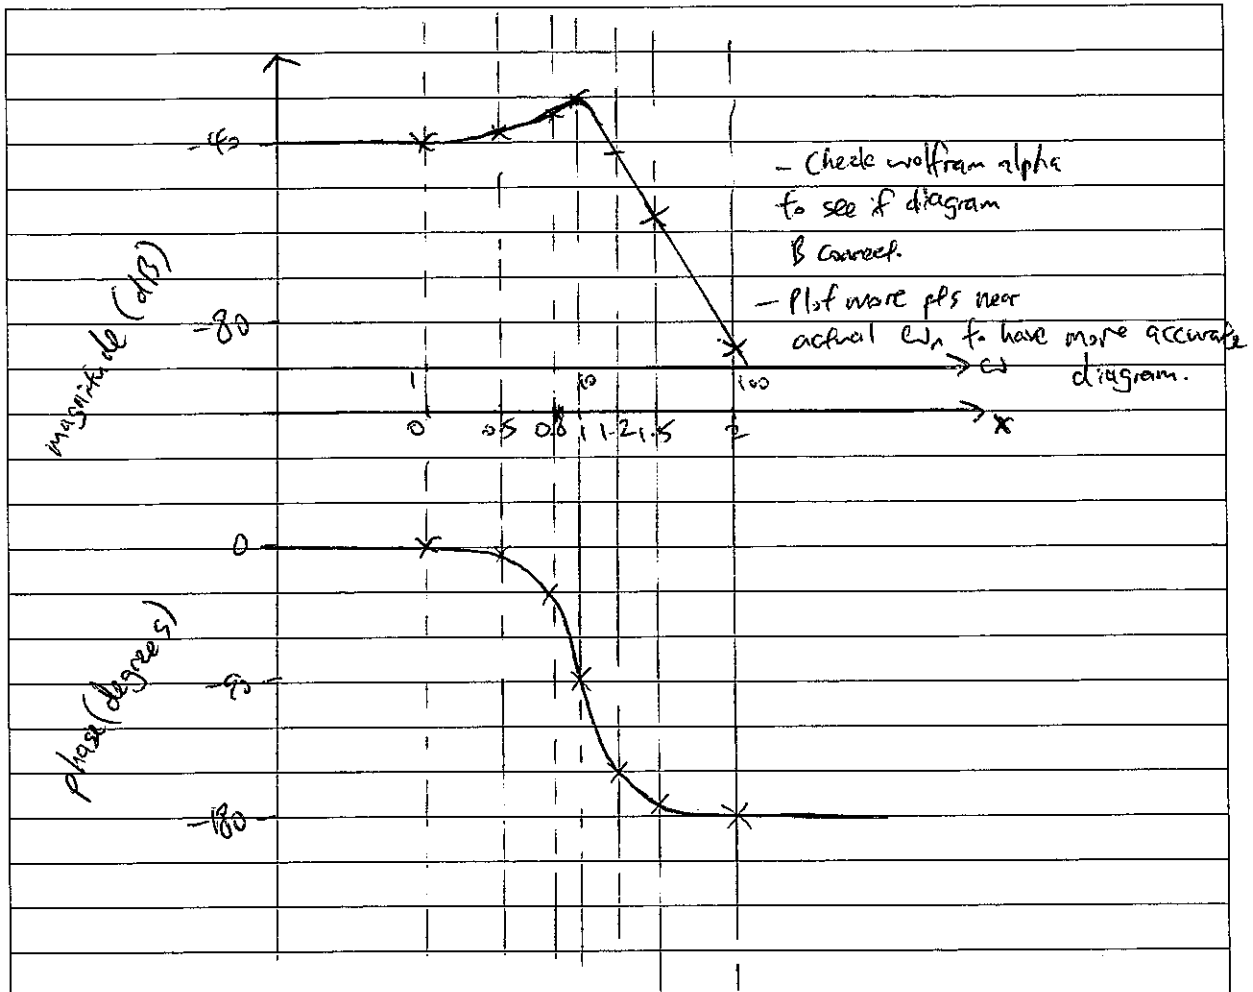 -40
- Check wolfram alpha
to see if diagram
is correct.
- Plot more pts near
actual ωn to have more accurate
diagram.
magnitude (dB)
-80
1
10
100
ω
0
0.5
0.8
1
1.2
1.5
2
x
0
phase (degrees)
-90
-180